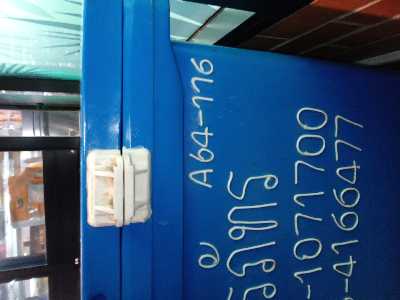 A64-116
รภัทร
-1071700
-4166477